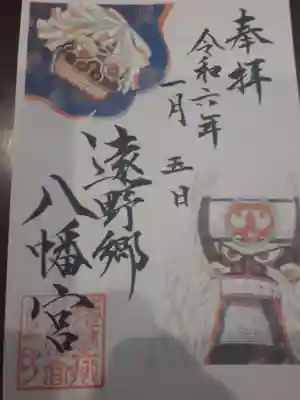 奉拝
令和六年
一月五日
遠野郷
八幡宮